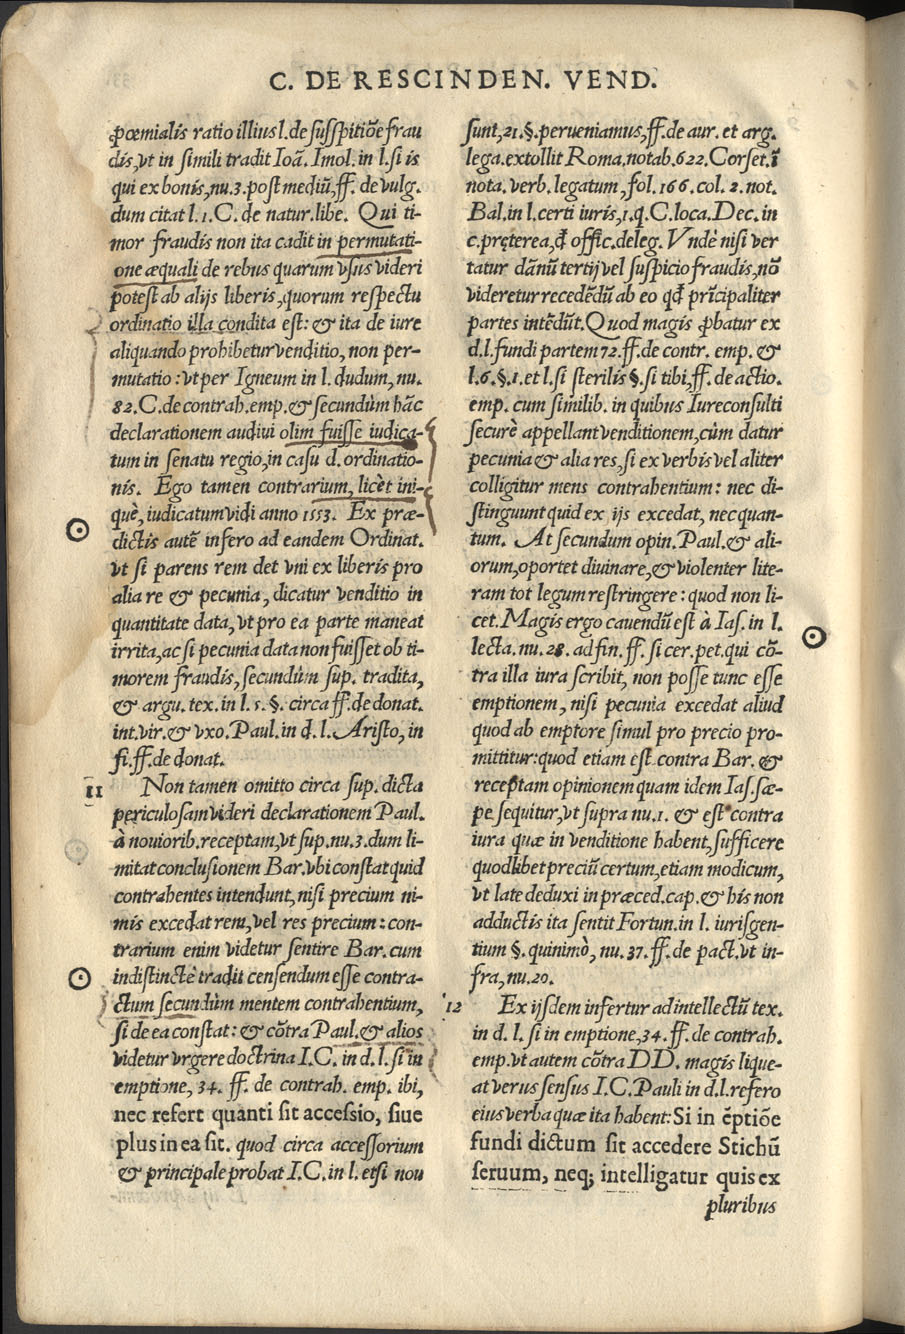 C. DE RESCINDEN. VEND.
ꝓœmialis ratio illius l. de suspitiõe frau
dis, vt in simili tradit Ioã. Imol. in l. si is
qui ex bonis, nu. 3. post mediũ, ff. de vulg.
dum citat l. 1. C. de natur. libe. Qui ti-
mor fraudis non ita cadit in permutati-
one æquali de rebus quarum vsus videri
potest ab alijs liberis, quorum respectu
ordinatio illa condita est: & ita de iure
aliquando prohibetur venditio, non per-
mutatio: vt per Igneum in l. dudum, nu.
82. C. de contrah. emp. & secundùm hãc
declarationem audiui olim fuisse iudica-
tum in senatu regio, in casu d. ordinatio-
nis. Ego tamen contrarium, licèt ini-
què, iudicatum vidi anno 1553. Ex præ-
dictis autẽ infero ad eandem Ordinat.
vt si parens rem det vni ex liberis pro
alia re & pecunia, dicatur venditio in
quantitate data, vt pro ea parte maneat
irrita, ac si pecunia data non fuisset ob ti-
morem fraudis, secundùm sup. tradita,
& argu. tex. in l. 5. §. circa ff. de donat.
int. vir. & vxo. Paul. in d. l. Aristo, in
fi. ff. de donat.
11 Non tamen omitto circa sup. dicta
periculosam videri declarationem Paul.
à nouiorib. receptam, vt sup. nu. 3. dum li-
mitat conclusionem Bar. vbi constat quid
contrahentes intendunt, nisi precium ni-
mis excedat rem, vel res precium: con-
trarium enim videtur sentire Bar. cum
indistinctè tradit censendum esse contra-
ctum secundùm mentem contrahentium,
si de ea constat: & cõtra Paul. & alios
videtur vrgere doctrina I.C. in d. l. si in
emptione, 34. ff. de contrah. emp. ibi,
nec refert quanti sit accessio, siue
plus in ea sit. quod circa accessorium
& principale probat I.C. in l. etsi non
sunt, 21. §. perueniamus, ff. de aur. et arg.
lega. extollit Roma. notab. 622. Corset. ĩ
nota. verb. legatum, fol. 166. col. 2. not.
Bal. in l. certi iuris, 1. q. C. loca. Dec. in
c. pręterea, ꝗ̃ offic. deleg. Vndè nisi ver
tatur dãnũ tertij vel suspicio fraudis, nõ
videretur recedẽdũ ab eo qđ prĩcipaliter
partes intẽdũt. Quod magis ꝓbatur ex
d. l. fundi partem 72. ff. de contr. emp. &
l. 6. §. 1. et l. si sterilis §. si tibi, ff. de actio.
emp. cum similib. in quibus Iureconsulti
securè appellant venditionem, cùm datur
pecunia & alia res, si ex verbis vel aliter
colligitur mens contrahentium: nec di-
stinguunt quid ex ijs excedat, nec quan-
tum. At secundum opin. Paul. & ali-
orum, oportet diuinare, & violenter lite-
ram tot legum restringere: quod non li-
cet. Magis ergo cauendũ est à Ias. in l.
lecta. nu. 28. ad fin. ff. si cer. pet. qui cõ-
tra illa iura scribit, non posse tunc esse
emptionem, nisi pecunia excedat aliud
quod ab emptore simul pro precio pro-
mittitur: quod etiam est contra Bar. &
receptam opinionem quam idem Ias. sæ-
pe sequitur, vt supra nu. 1. & est contra
iura quæ in venditione habent, sufficere
quodlibet preciũ certum, etiam modicum,
vt late deduxi in præced. cap. & his non
adductis ita sentit Fortun. in l. iurisgen-
tium §. quinimò, nu. 37. ff. de pact. vt in-
fra, nu. 20.
12 Ex ijsdem infertur ad intellectũ tex.
in d. l. si in emptione, 34. ff. de contrah.
emp. vt autem cõtra DD. magis lique-
at verus sensus I.C. Pauli in d. l. refero
eius verba quæ ita habent: Si in ẽptiõe
fundi dictum sit accedere Stichũ
seruum, neq; intelligatur quis ex
pluribus